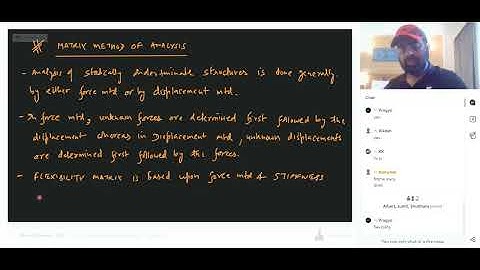 * MATRIX METHOD OF ANALYSIS
- Analysis of statically indeterminate structures is done generally
by either force mtd or by displacement mtd.
- In force mtd, unknown forces are determined first followed by the
displacement whereas in Displacement mtd, unknown displacements
are determined first followed by the forces.
- FLEXIBILITY MATRIX is based upon force mtd & STIFFNESS
Chat